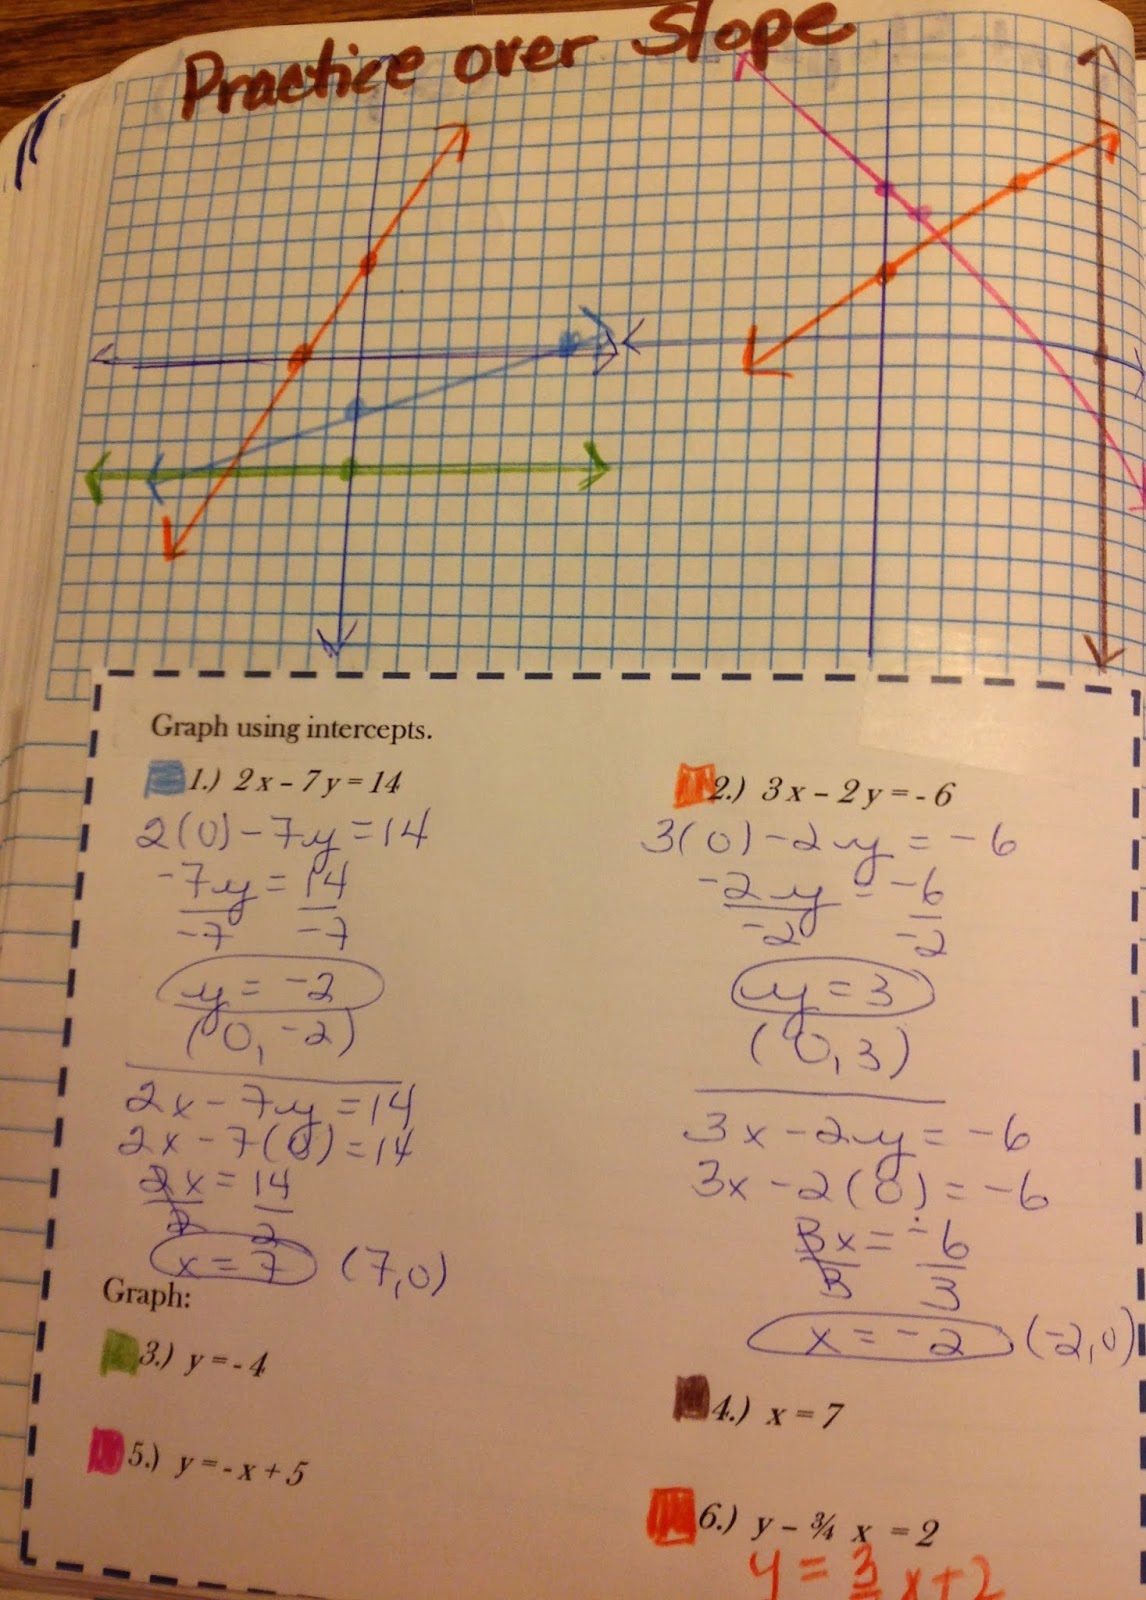 Practice over Slope
Graph using intercepts.
1.) 2x - 7y = 14
2(0) - 7y = 14
-7y = 14
-7 -7
y = -2
(0, -2)
2x - 7y = 14
2x - 7(0) = 14
2x = 14
2 2
x = 7 (7,0)
2.) 3x - 2y = -6
3(0) - 2y = -6
-2y = -6
-2 -2
y = 3
(0, 3)
3x - 2y = -6
3x - 2(0) = -6
3x = -6
3 3
x = -2 (-2,0)
Graph:
3.) y = -4
4.) x = 7
5.) y = -x + 5
6.) y - ¾ x = 2
y = 3 x + 2